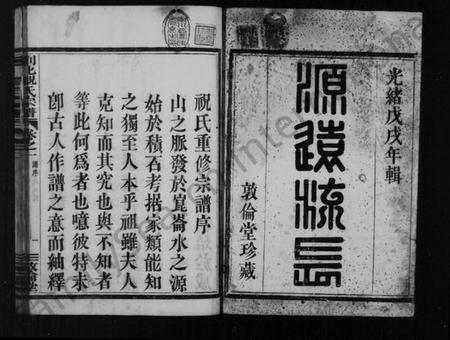 光緒戊戌年輯
源遠流長
敦倫堂珍藏
祝氏重修宗譜序
山之脈發於崑崙水之源
始於積石考据家類能知
之獨至人本乎祖雖夫人
克知而其究也與不知者
等此何爲者也噫彼特未
卽古人作譜之意而紬繹
祝氏宗譜
卷之一
譜序
一